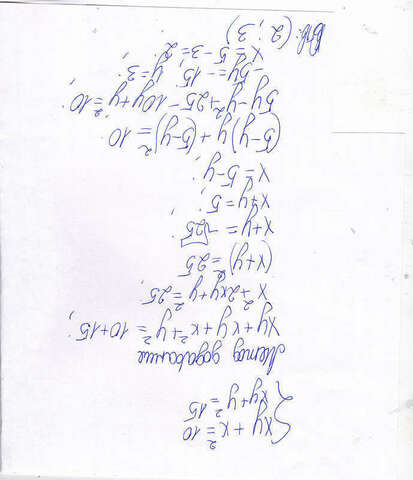 {xy + x² = 10
xy + y² = 15
Метод додавання
xy + xy + x² + y² = 10 + 15;
x² + 2xy + y² = 25;
(x+y)² = 25
x+y = √25;
x+y = 5;
x = 5-y;
(5-y)y + (5-y)² = 10.
5y - y² + 25 - 10y + y² = 10;
-5y = -15; y = 3;
x = 5 - 3 = 2.
(2; 3)